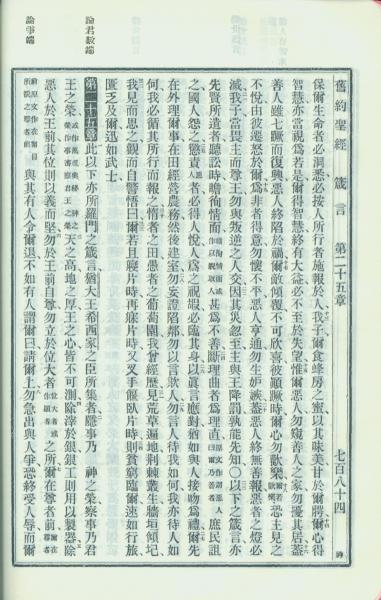 舊約聖經 箴言 第二十五章 七百八十四
保爾生命者必洞悉必按人所行者施報於人我子爾食蜂房之蜜以其味美甘於爾腭爾心得
智慧亦當視爲若是爾得智慧終有大益必不至於失望惟爾惡人勿窺善人之家勿擾其居蓋
善人雖七躓而復興惡人終陷於禍爾敵傾覆不可欣喜彼顚蹶時爾心勿歡樂恐主見之
不悅由彼遷怒於爾爲非者得意勿懷不平惡人亨通勿生妒嫉蓋惡人終無善報惡者之燈必
滅我子當畏主而尊王勿與叛逆之人交因其災忽至主與王降罰孰能先知○以下之箴言亦
先賢所遺者聽訟時瞻徇情面甚爲不善斷理曲者爲理直庶民詛
之國人怨之懲責惡者必得人悅人爲之祝嘏必臨其身以眞言應對猶如與人接吻爲禮爾先
在外理爾事在田經營農務然後建室勿妄證陷鄰勿以言欺人勿言人待我如何我亦待人如
何我必循其所行而報之惰者之田愚者之葡萄園我曾經歷見荒草遍地荆棘叢生牆垣傾圮
我見而思之觀而自警悟曰爾若且寢片時再寐片時又叉手偃臥片時則貧窮臨爾速如行旅
匱乏及爾迅如武士
第二十五章 此以下亦所羅門之箴言猶大王希西家之臣所集者隱事乃 神之榮察事乃君
王之榮天之高地之厚王之心皆不可測除滓於銀銀工則用以製器除
惡人於王前其位則以義而堅勿於王前自尊勿立於位大者之所
與其有人令爾退不如有人謂爾曰請爾上勿急出與人爭恐終受人辱而爾
論君數端
論爭端